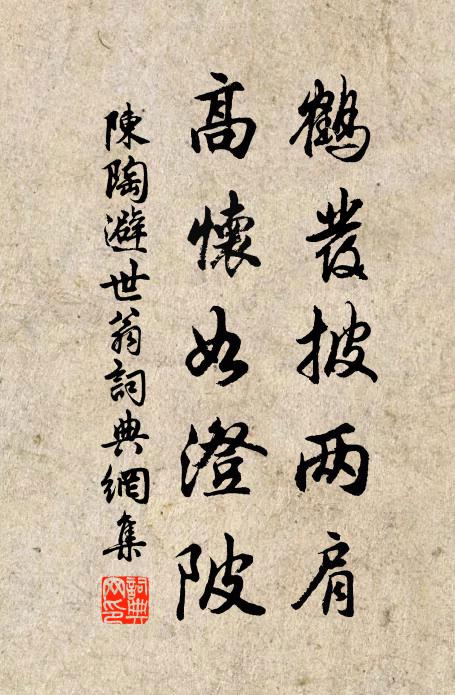 鶴發披两肩
高懷如澄陂
陳陶避世翁詞典網集
詞典網印